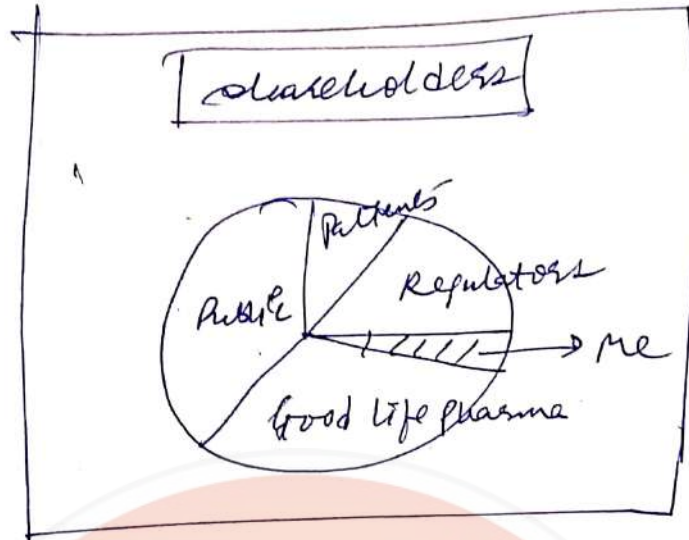 Shareholders
Patients
Regulators
Public
Me
Good Life pharma